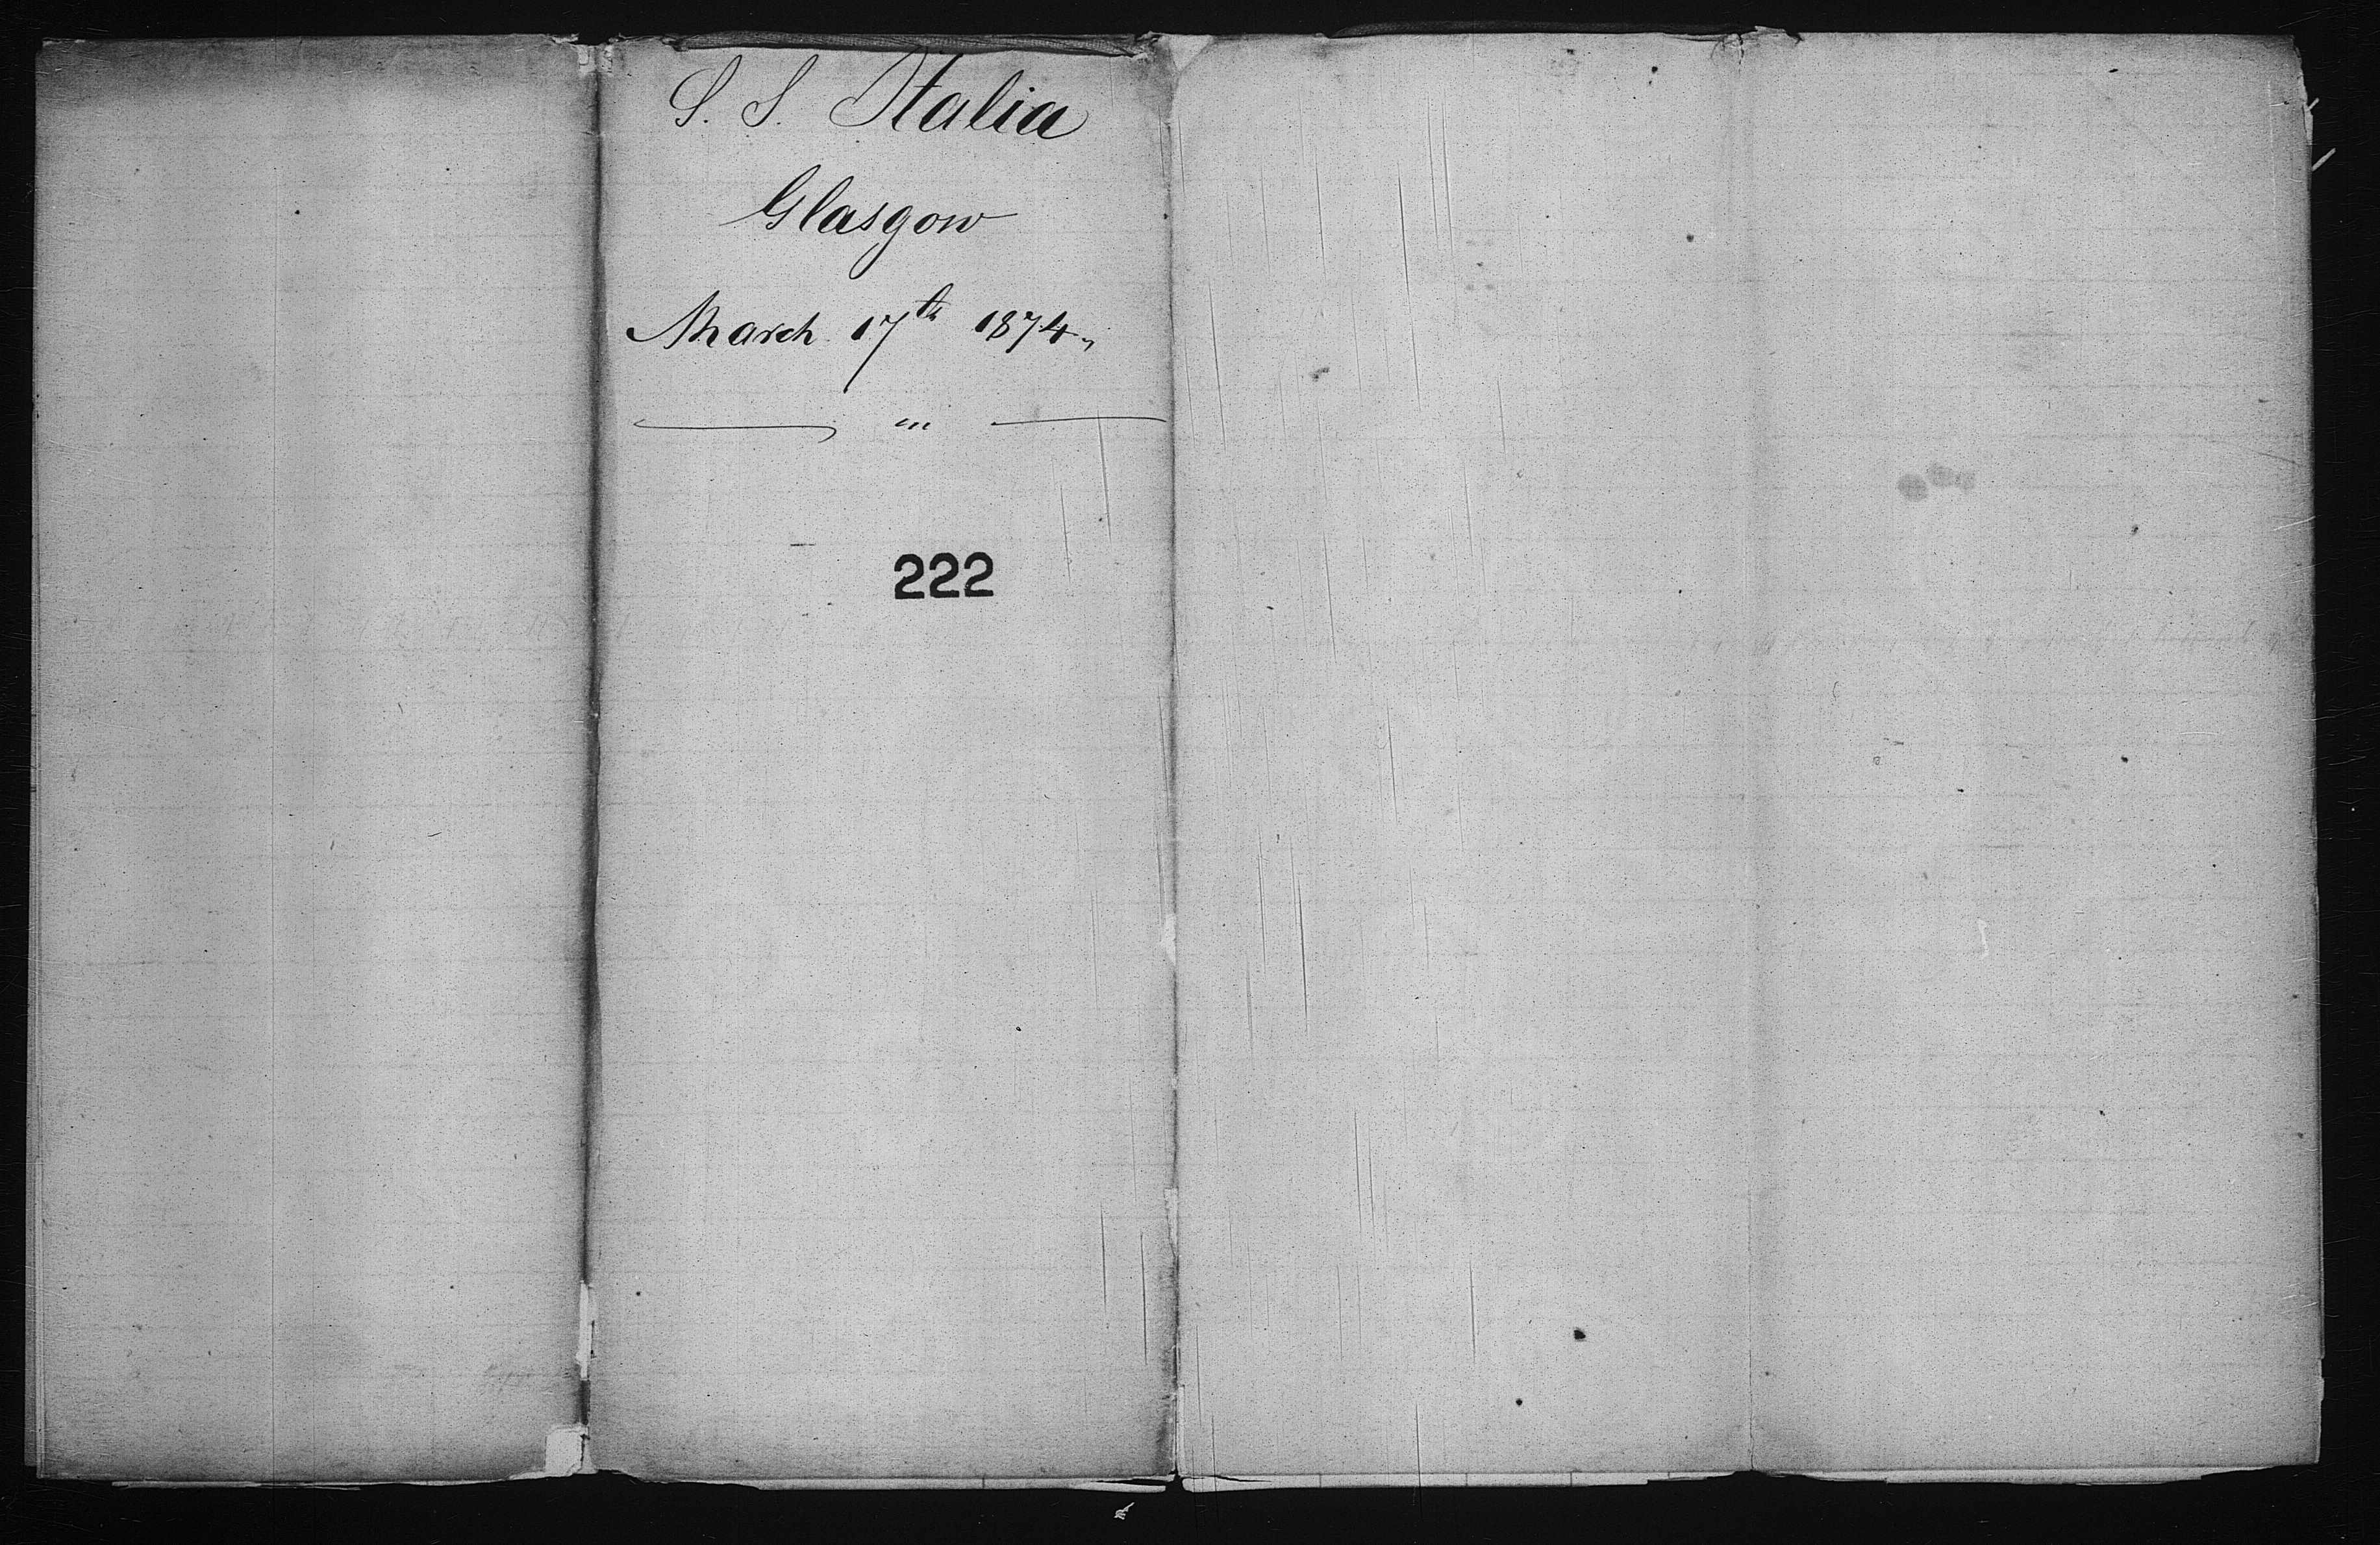 S. S. Italia
Glasgow
March 17th 1874 "
— " —
222